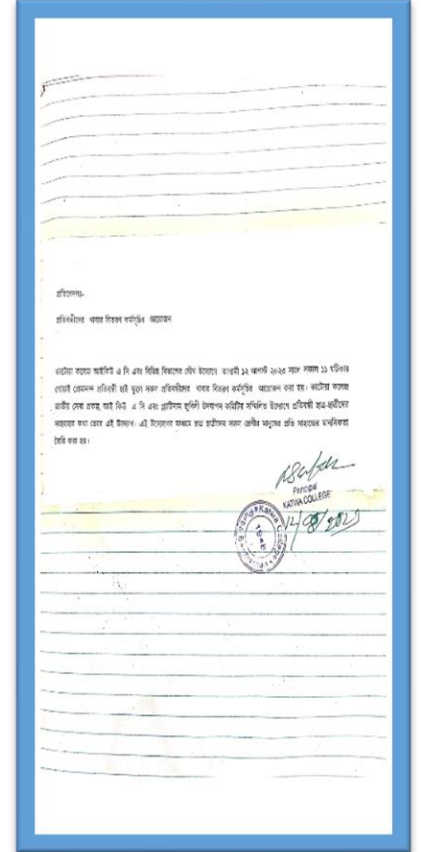 প্রতিবেদনঃ-
প্রতিবন্ধীদের খাবার বিতরণ কর্মসূচির আয়োজন
কাটোয়া কলেজ আইকিউ এ সি এবং বিভিন্ন বিভাগের যৌথ উদ্যোগে আগামী ১২ আগস্ট ২০২৩ সালে সকাল ১১ ঘটিকায়
প্রতিবন্ধী হাই স্কুলে সকল প্রতিবন্ধীদের খাবার বিতরণ কর্মসূচির আয়োজন করা হয়। কাটোয়া কলেজ
জাতীয় সেবা প্রকল্প আই কিউ এ সি এবং প্লাটিনাম জুবিলী উদযাপন কমিটির সম্মিলিত উদ্যোগে প্রতিবন্ধী ছাত্র-ছাত্রীদের
সাহায্যের কথা ভেবে এই উদ্যোগ। এই উদ্যোগের মাধ্যমে ছাত্র ছাত্রীদের সকল শ্রেণীর মানুষের প্রতি সাহায্যের মানসিকতা
তৈরি করা হয়।
Principal
KATWA COLLEGE
12/08/2023
Katwa College
1948